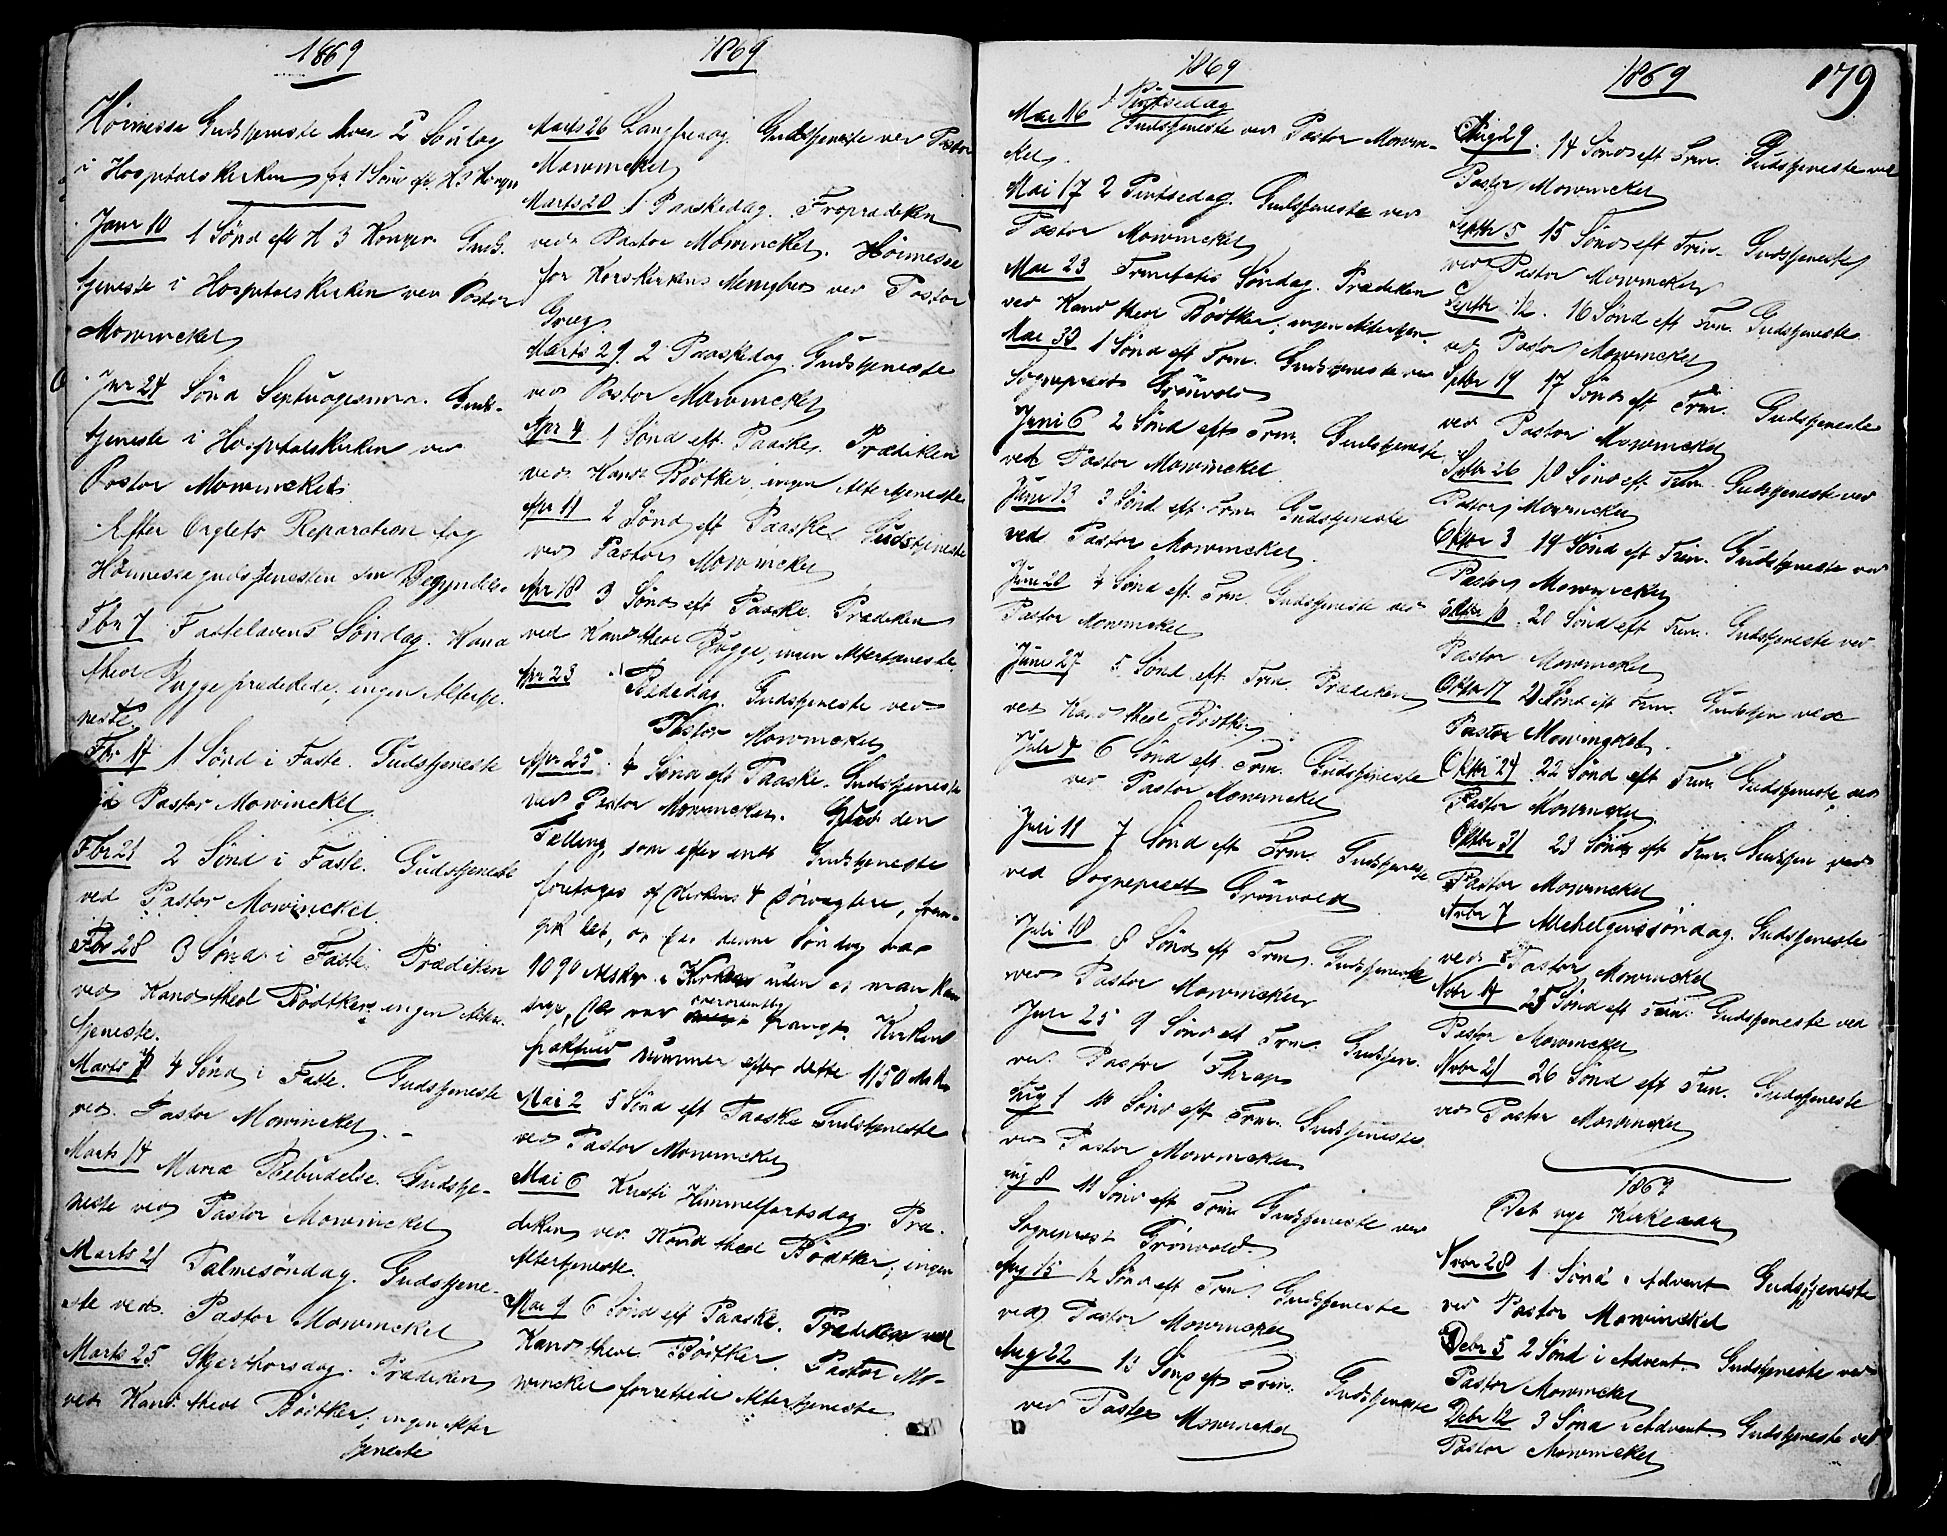 1869
Høimesse Gudstjeneste hver 2 Søndag
i Hospitalskirken fra 1 Sønd eft H 3 Konger
Janr 10 1 Sønd eft H 3 Konger. Guds-
tjeneste i Hospitalskirken ved Pastor
Mowinckel
Janr 24 Sønd Septuagesima. Guds-
tjeneste i Hospitalskirken ved
Pastor Mowinckel.
Efter Orglets Reparation tog
Høimessegudstjenesten sin Begyndelse
Fbr 7 Fastelavens Søndag. Kand
theol Bugge prædikede, ingen Altertje-
neste.
Fbr 14 1 Sønd i Faste. Gudstjeneste
ved Pastor Mowinckel
Fbr 21 2 Sønd i Faste. Gudstjeneste
ved Pastor Mowinckel.
Fbr 28 3 Sønd i Faste. Prædiken
ved Kand theol Bödtker, ingen Alter-
tjeneste.
Marts 7 4 Sønd i Faste. Gudstjeneste
ved Pastor Mowinckel.
Marts 14 Mariæ Bebudelse. Gudstje-
neste ved Pastor Mowinckel
Marts 21 Palmesøndag. Gudstjene-
ste ved Pastor Mowinckel
Marts 25 Skjærthorsdag. Prædiken
ved Kand. theol Bödtker, ingen Alter
tjeneste
1869
Marts 26 Langfredag. Gudstjeneste ved Pastor
Mowinckel
Marts 28 1 Paaskedag. Froprædiken
ved Pastor Mowinckel. Høimesse
for Korskirkens Menighed ved Pastor
Greg.
Marts 29. 2 Paaskedag. Gudstjeneste
ved Pastor Mowinckel
Apr 4 1 Sønd eft. Paaske. Prædiken
ved Kand. Bödtker, ingen Altertjeneste
Apr 11 2 Sønd eft Paaske. Gudstjeneste
ved Pastor Mowinckel
Apr 18 3 Sønd eft Paaske. Prædiken
ved Kand theol Bugge, ingen Altertjeneste.
Apr 23 Bededag. Gudstjeneste ved
Pastor Mowinckel
Apr 25 4 Sønd eft Paaske. Gudstjeneste
ved Pastor Mowinckel. den
Tælling, som efter endt Gudstjeneste
foretoges af Kirkens 4 Dørvogtere, frem-
gik det, at der denne Søndag var
1090 Msker i Kirken uden at man kan
sige, der var overordentlig trangt. Kirken
pakfuld rummer efter dette 1150 Mskr
Mai 2 5 Sønd eft Paaske Gudstjeneste
ved Pastor Mowinckel
Mai 6 Kristi Himmelfartsdag. Præ-
diken ved Kand theol Bödtker, ingen
Altertjeneste.
Mai 9 6 Sønd eft Paaske. Prædiken ved
Kand theol Bödtker. Pastor Mo-
winckel forrettede Altertjeneste
1869
Mai 16 1 Pintsedag
Gudstjeneste ved Pastor Mowin-
ckel.
Mai 17 2 Pintsedag. Gudstjeneste ved
Pastor Mowinckel
Mai 23 Trinitatis Søndag. Prædiken
ved Kand theol Bödtker, ingen Altertjen.
Mai 30 1 Sønd eft Trin. Gudstjeneste ved
Sognepræst Grönvold
Juni 6 2 Sønd eft Trin. Gudstjeneste
ved Pastor Mowinckel
Juni 13 3 Sønd eft. Trin. Gudstjeneste
ved Pastor Mowinckel.
Juni 20 4 Sønd eft. Trin. Gudstjeneste ved
Pastor Mowinckel
Juni 27 5 Sønd eft. Trin. Prædiken
ved Kand theol Bödtker
Juli 4 6 Sønd eft. Trin. Gudstjeneste
ved Pastor Mowinckel
Juli 11 7 Sønd eft Trin. Gudstjeneste
ved Sognepræst Grönvold
Juli 18 8 Sønd eft Trin. Gudstjeneste
ved Pastor Mowinckel
Juli 25 9 Sønd eft Trin. Gudstjen.
ved Pastor Thrap
Aug 1 10 Sønd eft Trin. Gudstjeneste
ved Pastor Mowinckel
Aug 8 11 Sønd eft Trin Gudstjeneste ved
Sognepræst Grönvold.
Aug 15 12 Sønd eft Trin. Gudstjeneste
ved Pastor Mowinckel
Aug 22 13 Sønd eft Trin. Gudstjeneste
ved Pastor Mowinckel
1869
179
Aug 29. 14 Sønd eft Trin. Gudstjeneste ved
Pastor Mowinckel
Septbr 5 15 Sønd eft Trin. Gudstjeneste
ved Pastor Mowinckel
Septbr 12. 16 Sønd eft Trin. Gudstjeneste
ved Pastor Mowinckel
Sptbr 19 17 Sønd eft Trin. Gudstjeneste
ved Pastor Mowinckel
Sptbr 26 18 Sønd eft Trin. Gudstjeneste ved
Pastor Mowinckel
Oktbr 3 19 Sønd eft Trin. Gudstjeneste ved
Pastor Mowinckel
Oktbr 10. 20 Sønd eft Trin. Gudstjeneste ved
Pastor Mowinckel
Oktbr 17 21 Sønd eft Trin. Gudstjen ved
Pastor Mowinckel.
Oktbr 24 22 Sønd eft Trin. Gudstjeneste ved
Pastor Mowinckel
Oktbr 31 23 Sønd eft Trin. Gudstjen ved
Pastor Mowinckel
Novbr 7 Allehelgenssøndag. Gudstjeneste
ved Pastor Mowinckel
Novbr 14 25 Sønd eft Trin. Gudstjeneste ved
Pastor Mowinckel
Novbr 21 26 Sønd eft Trin. Gudstjeneste
ved Pastor Mowinckel
1869
Det nye Kirkeaar
Novbr 28 1 Sønd i Advent Gudstjeneste
ved Pastor Mowinckel
Debr 5 2 Sønd i Advent Gudstjeneste ved
Pastor Mowinckel
Debr 12 3 Sønd i Advent Gudstjeneste ved
Pastor Mowinckel